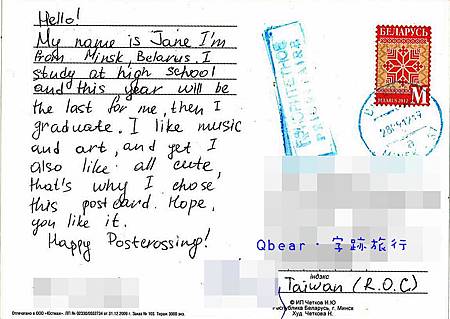 Hello!
My name is Jane I'm
from Minsk, Belarus. I
study at high school
and this year will be
the last for me, then I
graduate. I like music
and art, and yet I
also like all cute,
that's why I chose,
this postcard. Hope,
you like it.
Happy Postcrossing!
БЕЛАРУСЬ
BELARUS 2012
M
Qbear · 字跡旅行
індэкс
Taiwan (R.O.C.)
© ИП Четков Н.Ю
Республика Беларусь, г. Минск
Худ. Четкова Н.
Отпечатано в ООО «Юстмаж». ЛП № 02330/0552734 от 31.12.2009 г. Заказ № 103. Тираж 3000 экз.